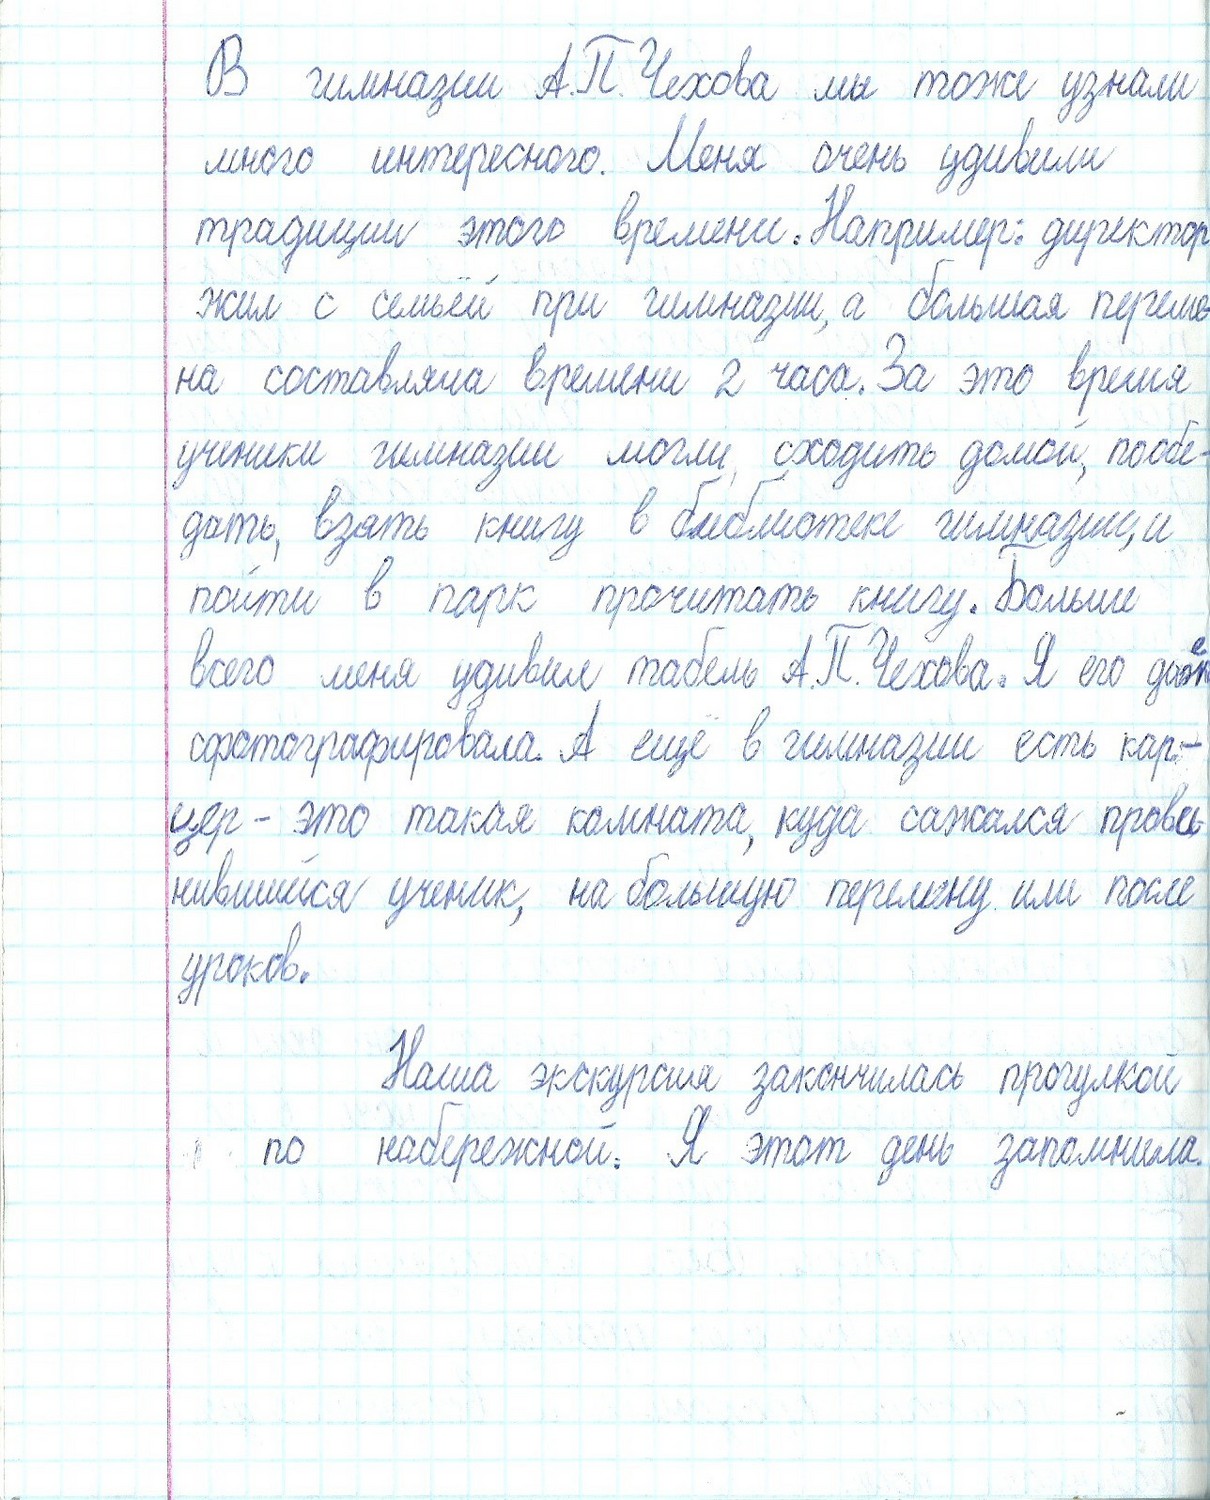 В гимназии А.П.Чехова мы тоже узнали
много интересного. Меня очень удивили
традиции этого времени. Например: директор
жил с семьёй при гимназии, а большая переме-
на составляла времени 2 часа. За это время
ученики гимназии могли сходить домой, пообе-
дать, взять книгу в библиотеке гимназии, и
пойти в парк прочитать книгу. Больше
всего меня удивил табель А.П.Чехова. Я его
сфотографировала. А ещё в гимназии есть кар-
цер - это такая комната, куда сажался прови-
нившийся ученик, на большую перемену или после
уроков.
Наша экскурсия закончилась прогулкой
по набережной. Я этот день запомнила.